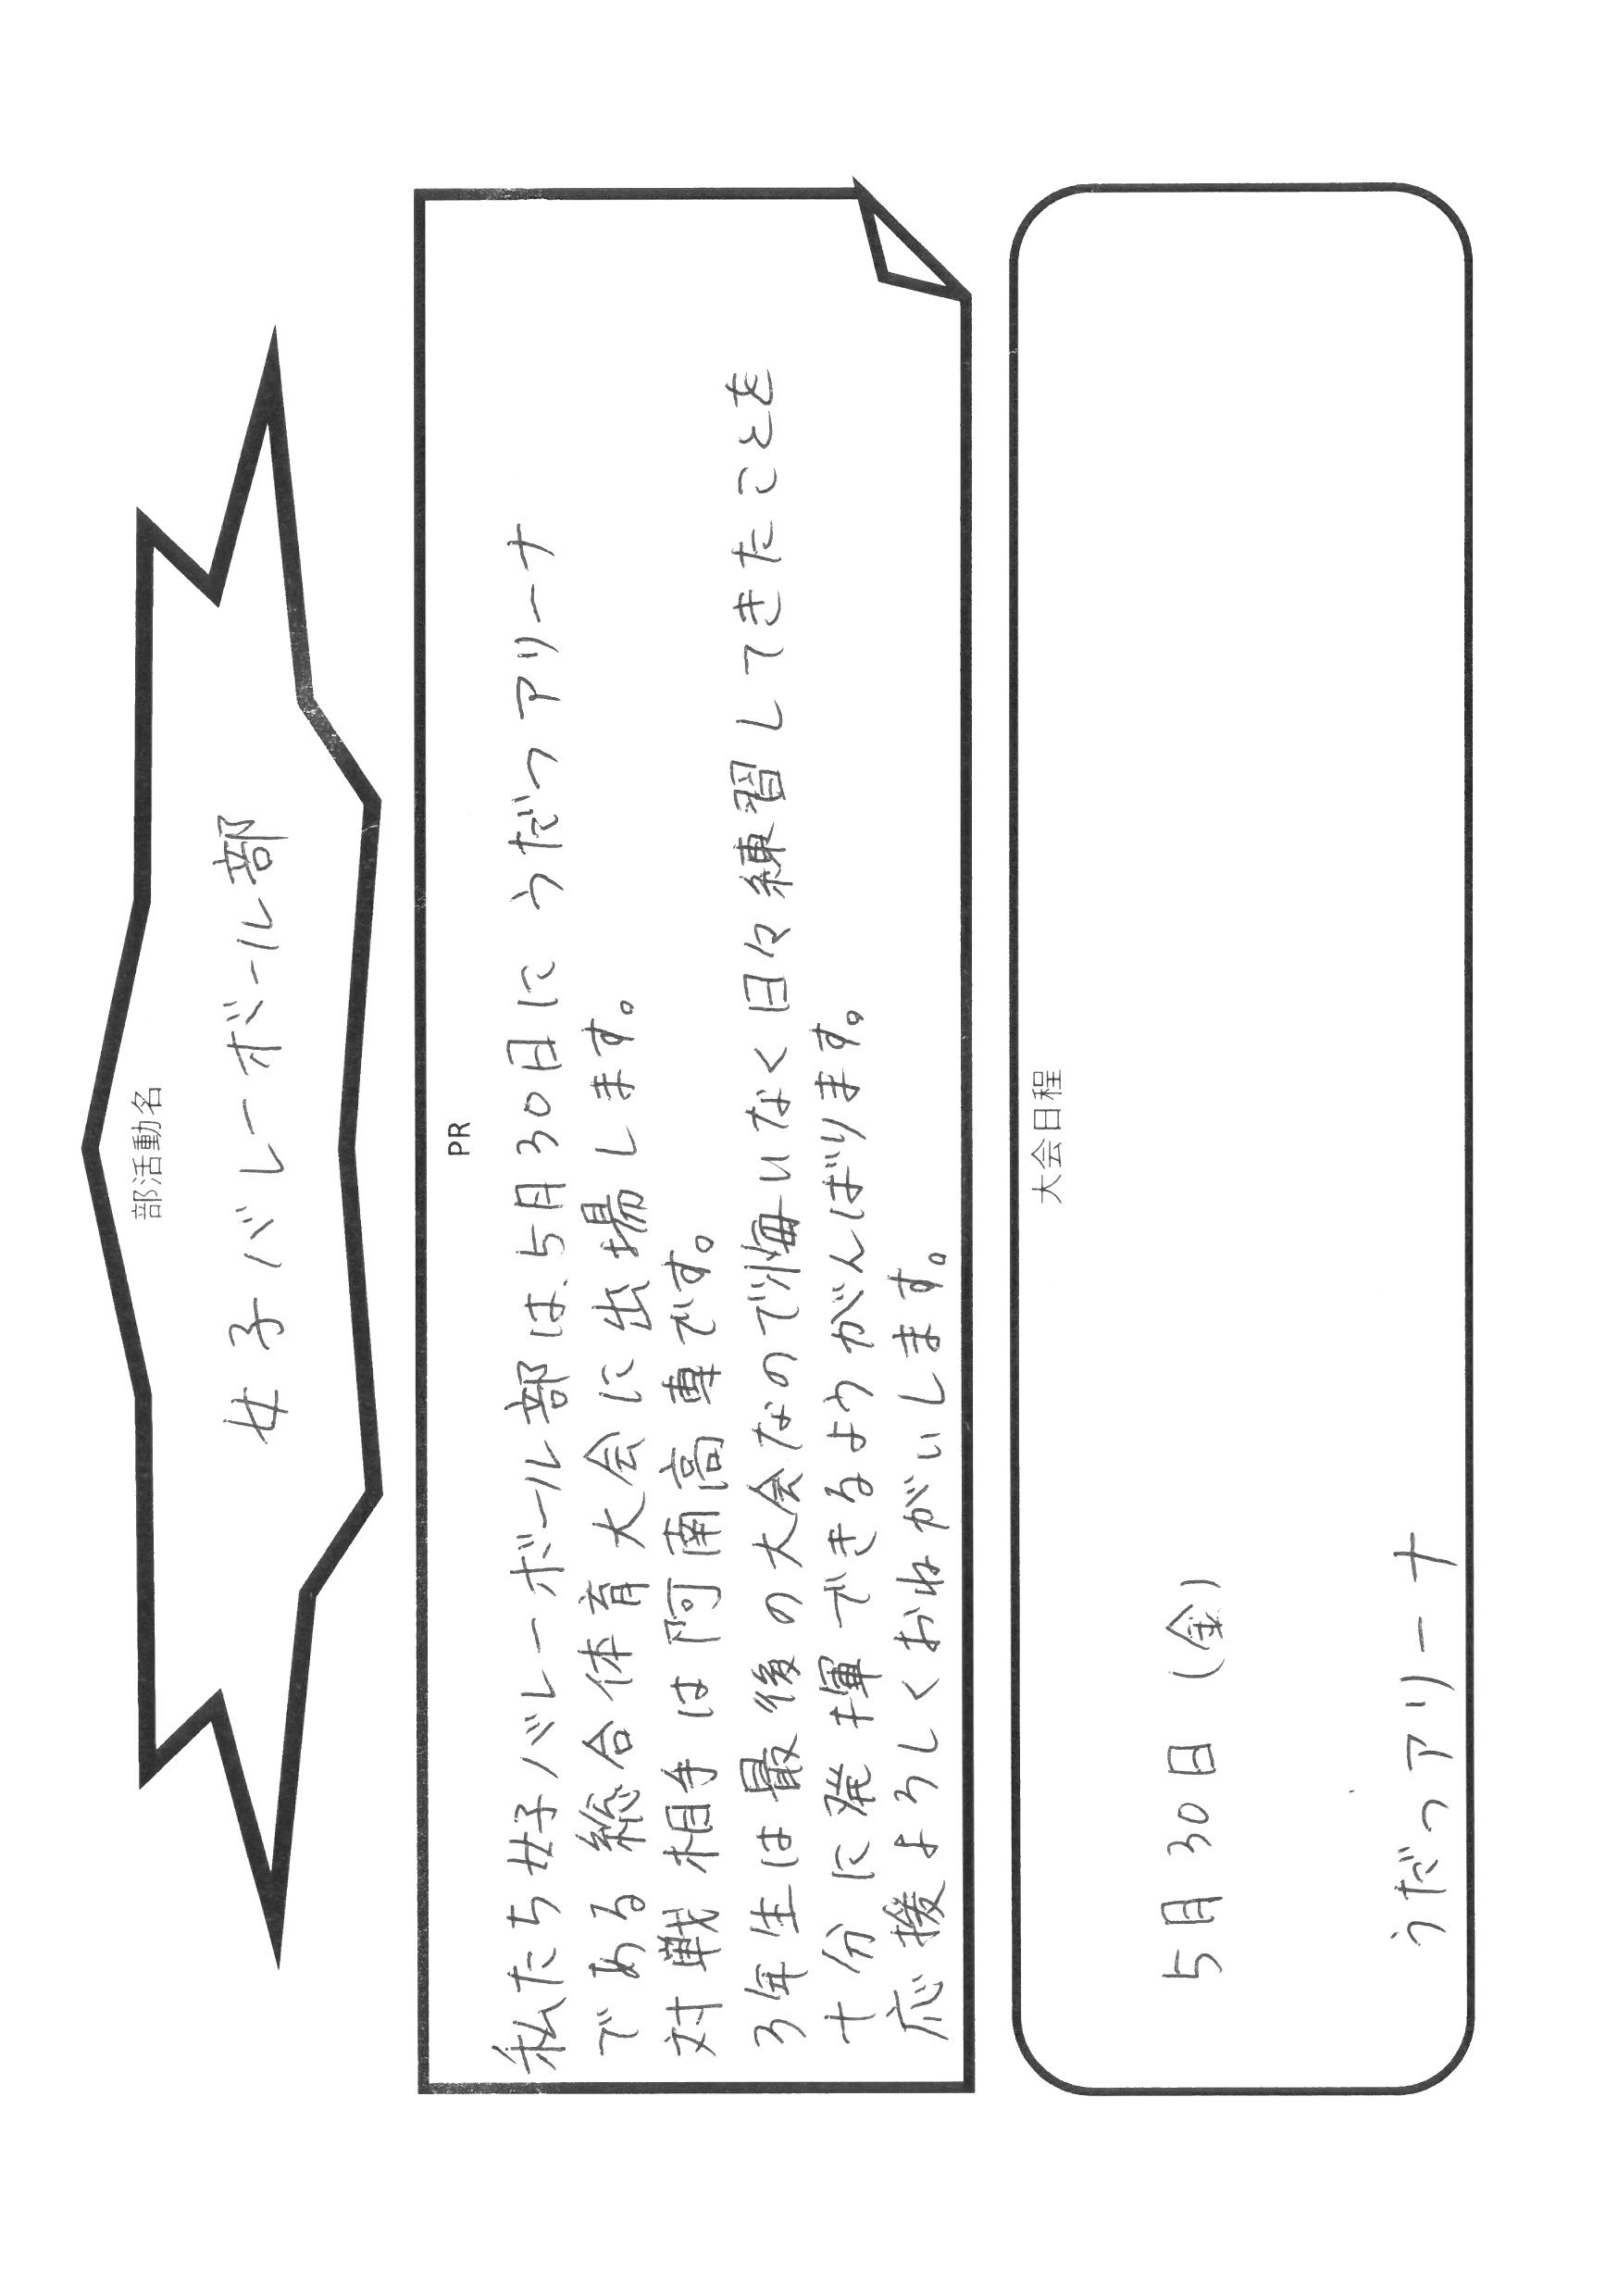 部活動名
女子バレーボール部
PR
私たち女子バレーボール部は、5月30日にうだつアリーナ
である総合体育大会に出場します。
対戦相手は阿南高専です。
3年生は最後の大会なので悔いなく日々練習してきたことを
十分に発揮できるようがんばります。
応援よろしくおねがいします。
大会日程
5月30日(金)
うだつアリーナ